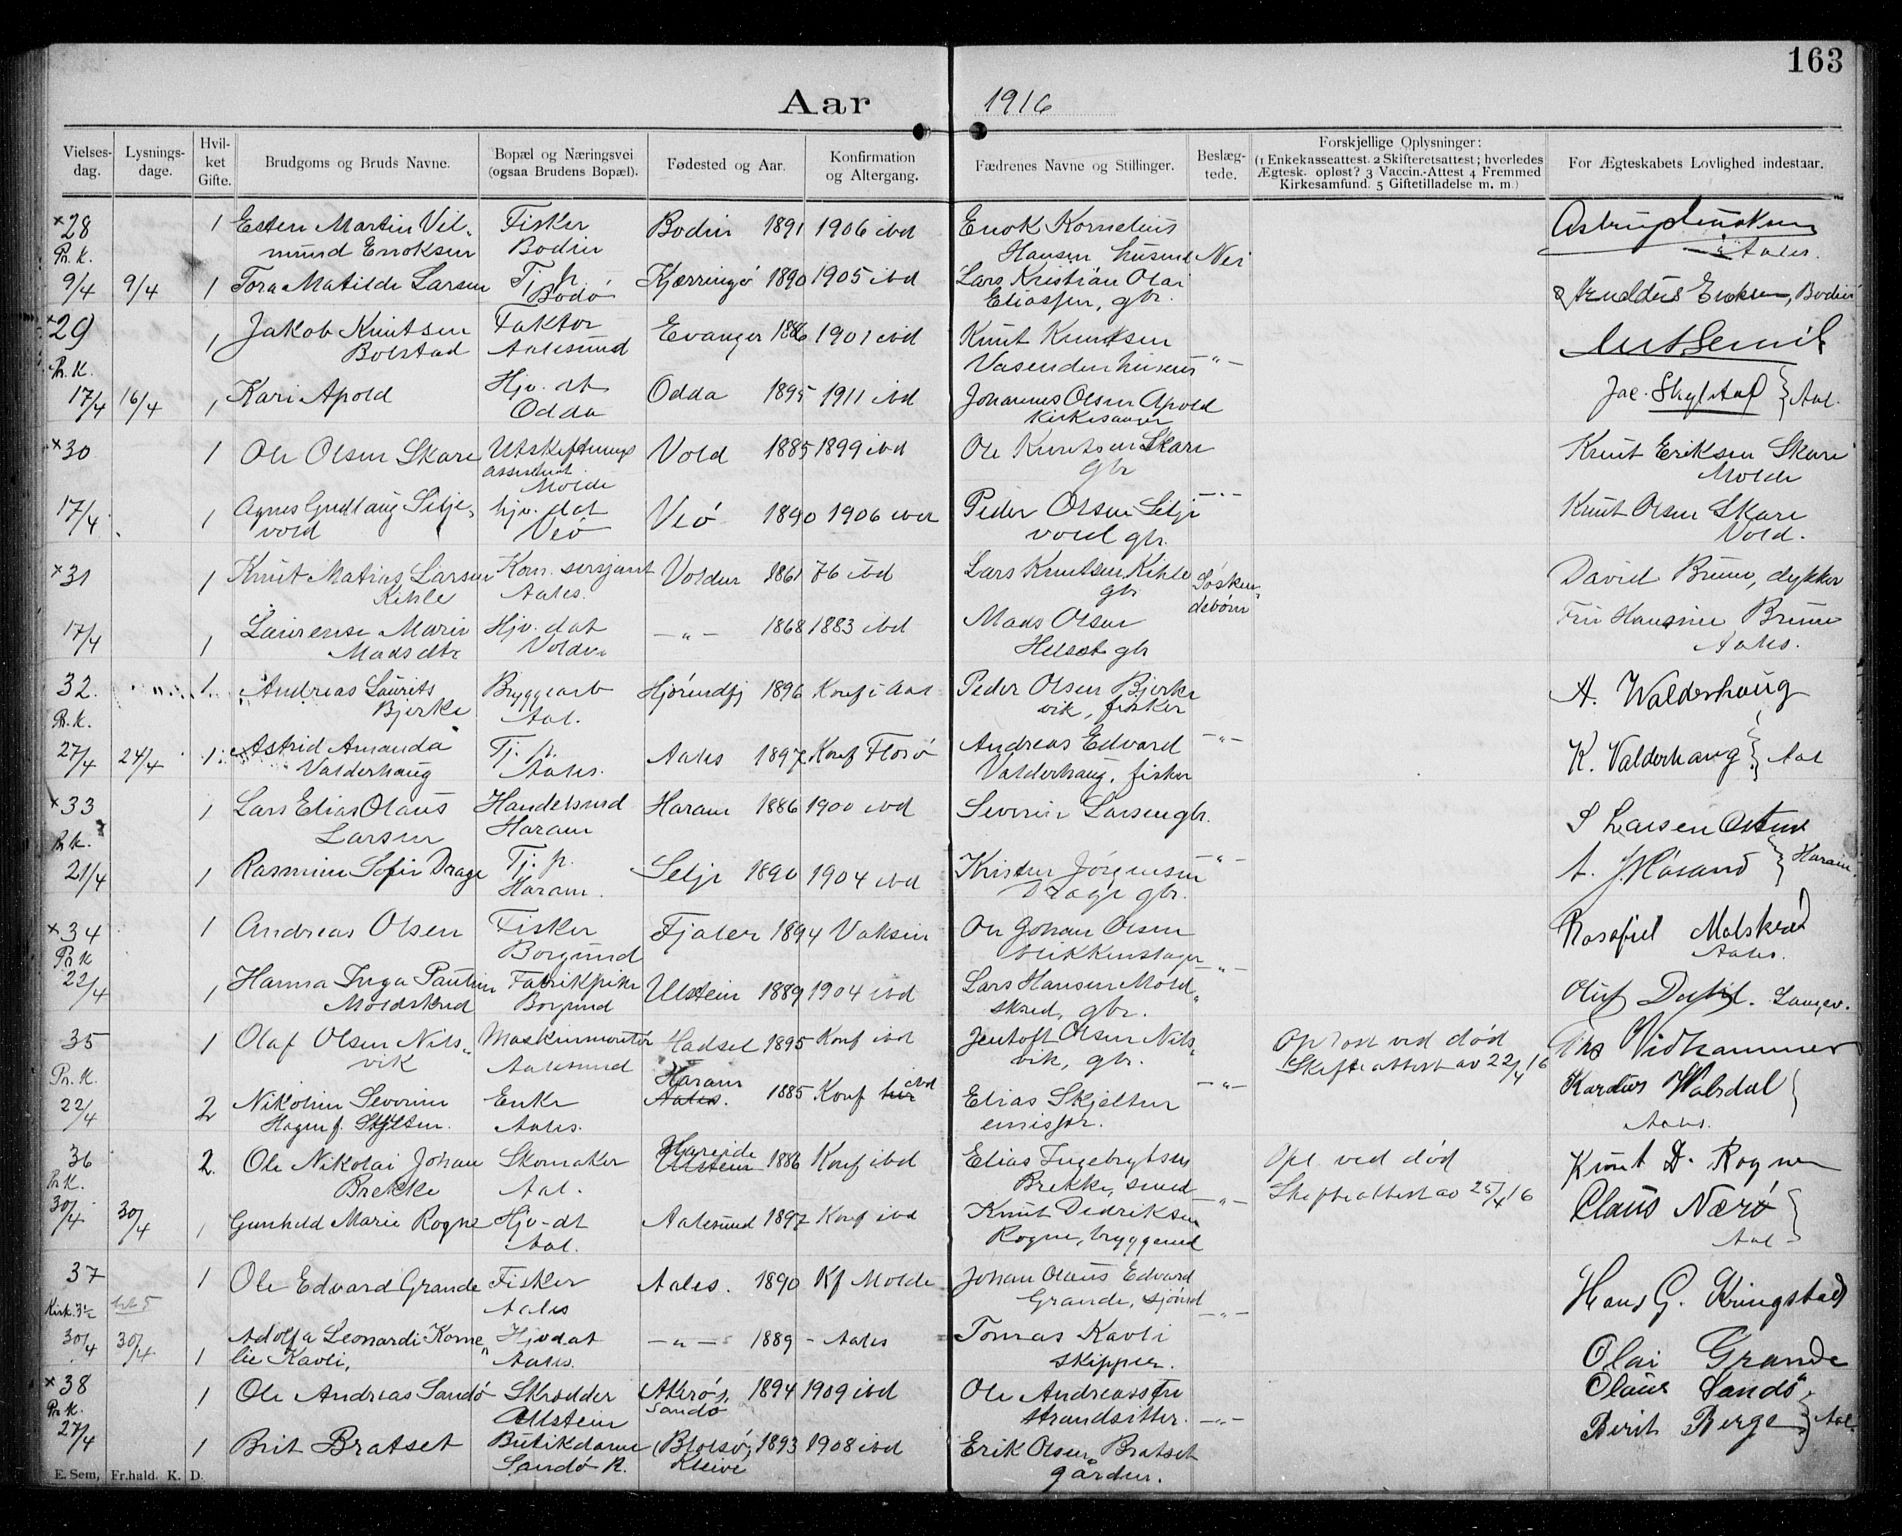 163
Aar 1916
Vielses-dag. Lysnings-dage. Hvil-ket Gifte. Brudgoms og Bruds Navne. Bopæl og Næringsvei (ogsaa Brudens Bopæl). Fødested og Aar. Konfirmation og Altergang. Fædrenes Navne og Stillinger. Beslæg-tede. Forskjellige Oplysninger: (1 Enkekasseattest. 2 Skifteretsattest; hverledes Ægtesk. opløst? 3 Vaccin.-Attest 4 Fremmed Kirkesamfund. 5 Giftetilladelse m. m.) For Ægteskabets Lovlighed indestaar.
×28 1 Esten Martin Vil- Fisker Bodin 1891 1906 ibd Enok Kornelius
Pr. K. mund Enoksen Bodin Hansen husmd Nei Aales.
9/4 9/4 1 Tora Matilde Larsen Tj. p. Kjerringø 1890 1905 ibd Lars Kristian Olai Enoksen, Bodin
Bodø Eliassen, gbr.
×29 1 Jakob Knutsen Faktor Evanger 1886 1901 ibd Knut Knutsen
Pr. K. Bolstad Aalesund Vasenden husm -"-
17/4 16/4 1 Kari Apold Hjv. dt Odda 1895 1911 ibd Johannes Olsen Apold Jac. Skylstad } Aal.
Odda kirkesanger
×30 1 Ole Olsen Skare Utskiftnings Vold 1885 1899 ibd Ole Knutsen Skare Knut Eriksen Skare
assistent Molde gbr Molde
17/4 1 Agnes Gudlaug Setje- hjv. dat Veø 1890 1906 ibd Peder Olsen Setje -"- Knut Olsen Skare
vold Veø vold gbr. Vold.
×31 1 Knut Matias Larsen Kom. sersjant Volden 1861 76 ibd Lars Knutsen Kihle Søsken- David Brune, dykker
Kihle Aales. gbr debørn
17/4 1 Laurense Marie Hjv. dat -"- 1868 1883 ibd Mads Olsen Fru Hansine Brune
Madsdtr Volden Helset gbr Aales.
32. 1 Andreas Laurits Bryggearb Hjørundfj 1896 Konf i Aal Peder Olsen Bjerke A. Walderhaug
Pr. K. Bjerke Aal. vik, fisker
27/4 24/4 1 Astrid Amanda Tj. p. Aales 1897 Konf Florø Andreas Edvard -"- K. Valderhaug } Aal
Valderhaug Aales. Valderhaug, fisker
×33 1 Lars Elias Olaus Handelsmd Haram 1886 1900 ibd Severin Larsen gbr. S Larsen
Pr. K. Larsen Haram
21/4 1 Rasmine Sofie Drage Tj. p. Selje 1890 1904 ibd Kristen Jørgensen -"- } Haram.
Haram. Drage gbr.
×34 1 Andreas Olsen Fisker Fjaler 1894 Voksen Ole Johan Olsen Molskred
Pr K Borgund blikkenslager Aales.
22/4 1 Hanna Inga Pauline Fabrikpike Ulstein 1889 1904 ibd Lars Hansen Mold- -"- Oluf
Moldskred Borgund skred, gbr.
35 1 Olaf Olsen Nils- Maskinmontør Hadsel 1895 Konf ibd Jentoft Olsen Nils- Opløst ved død Vidhammer
Pr. K. vik Aalesund vik, gbr. Skifteattest av 22/4 16
22/4 2 Nikoline Severine Enke Haram Aales. 1885 Konf her ibd Elias Skjelten -"- Walsdal }
Hagen f. Skjelten. Aales. emissær. Aales.
36 2. Ole Nikolai Johan Skomaker Hareide Ulstein 1886 Konf ibd Elias Ingebrigtsen Opl. ved død Knut D. Rogne
Pr. K. Brekke Aal. Brekke, smed Skifteattest av 25/4 16
30/4 30/4 1 Gunhild Marie Rogne Hjv-dt Aalesund 1897 Konf ibd Knut Didriksen -"- Claus Nærø }
Aal. Rogne, bryggemd Aal
37 1 Ole Edvard Grande Fisker Aales. 1890 Kf Molde Johan Olaus Edvard Hans G. Kringstad
Kirk. Aales Grande, sjømd -"-
30/4 30/4 1 Adolfa Leonardi Korne- Hjvdat -"- 1889 - Aales Tomas Kavli Olai Grande
lie Kavli, Aales. skipper.
×38 1 Ole Andreas Sandø Skrædder Akrø, 1894 1909 ibd Ole Andreassen Olaus Sandø
Pr. K. Ulstein Sandø strandsitter. -"-
27/4 1 Brit Bratset Butikdame (Bolsø, 1893 1908 ibd Erik Olsen Bratset Berit Berge } Aal.
Sandø K. Kleive gårdm.
E. Sem, Fr.hald. K. D.